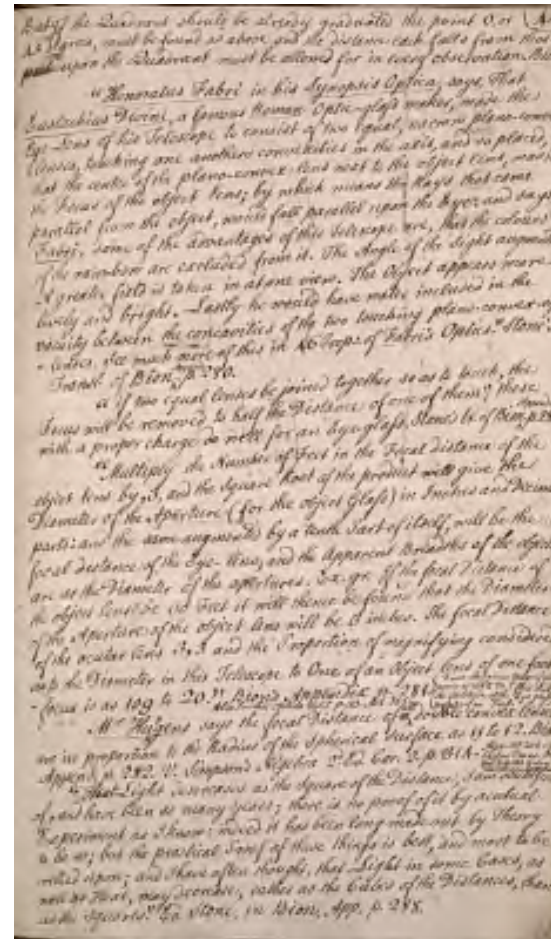 Body of the Quadrant should be already graduated the point 0, or
Degrees, must be found as above and the distance each falls from that
point upon the Quadrant must be allowed for in every observation.
"Honoratus Fabri in his Synopsis Optica, says, That
Eustachius Divini, a famous Roman Optic-glass maker, made the
Eye-Lens of his Telescope to consist of two equal, narrow plano-convex
Lenses, touching one anothers convexities in the axis, and so placed,
that the centre of the plano-convex lens next to the object lens, was
the Focus of the object lens; by which means the Rays that came
parallel from the object, would fall parallel upon the Eye; and says
Fabri, some of the advantages of this Telescope are, that the colours
of the rainbow are excluded from it. The Angle of the Sight augmented
A greater field is taken in at one view. The Object appears more
lively and bright. Lastly he would have water included in the
vacuity between the concavities of the two touching plano-convex
lenses. See much more of this in 46 Prop. of Fabri's Optics." Stone's
Transl. of Bion, p. 280.
"If two equal lenses be joined together so as to touch, the
Focus will be removed to half the Distance of one of them; these
with a proper charge do well for an Eye-glass, Stone's tr. of Bion, p.
"Multiply the Number of Feet in the Focal distance of the
object lens by 3, and the Square Root of the product will give the
Diameter of the Aperture (for the object Glass) in Inches and Decimal
parts: and the same augmented by a tenth part of itself, will be the
focal distance of the Eye-lens, and the Apparent Breadths of the object
are as the Diameter of the apertures. Ex. gr. If the focal Distance of
the object lens be Feet it will thence be found that the Diameter
of the Aperture of the object lens will be inches. The focal Distance
of the ocular lens 3,3 and the Proportion of magnifying considered
as to the Diameter in this Telescope to One of an Object lens of one foot
focus is as 109 to 20." Bion's Appendix p. 281
Mr. Huygens says the focal Distance of a double convex lens
are in proportion to the Radius of the Spherical surface as 11 to 12. Bion
Append. p. 282. V. Simpson's Algebra 2d Ed. p.
"That Light decreases as the Square of the Distance, I am doubtful
of, and have been so many years; there is no proof of it by actual
Experiment as I know; indeed it has been long made out by Theory
to be so; but the practical Proof of these things is best, and most to be
relied upon; and I have often thought, that Light in some Cases, as
well as Heat, may decrease, rather as the Cubes of the Distances, than
as the Squares." Ed. Stone, in Bion, App. p. 288.